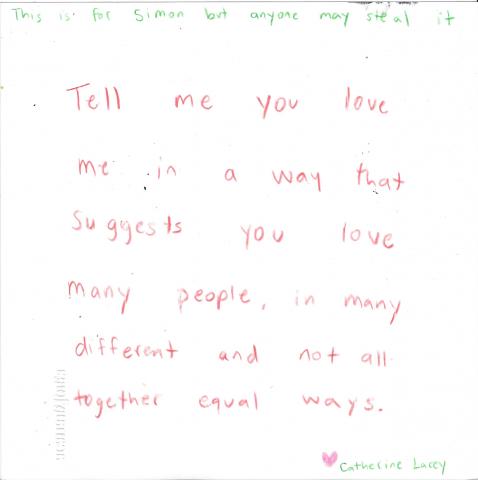 This is for Simon but anyone may steal it
Tell me you love
me in a way that
suggests you love
many people, in many
different and not all
together equal ways.
Catherine Lacey